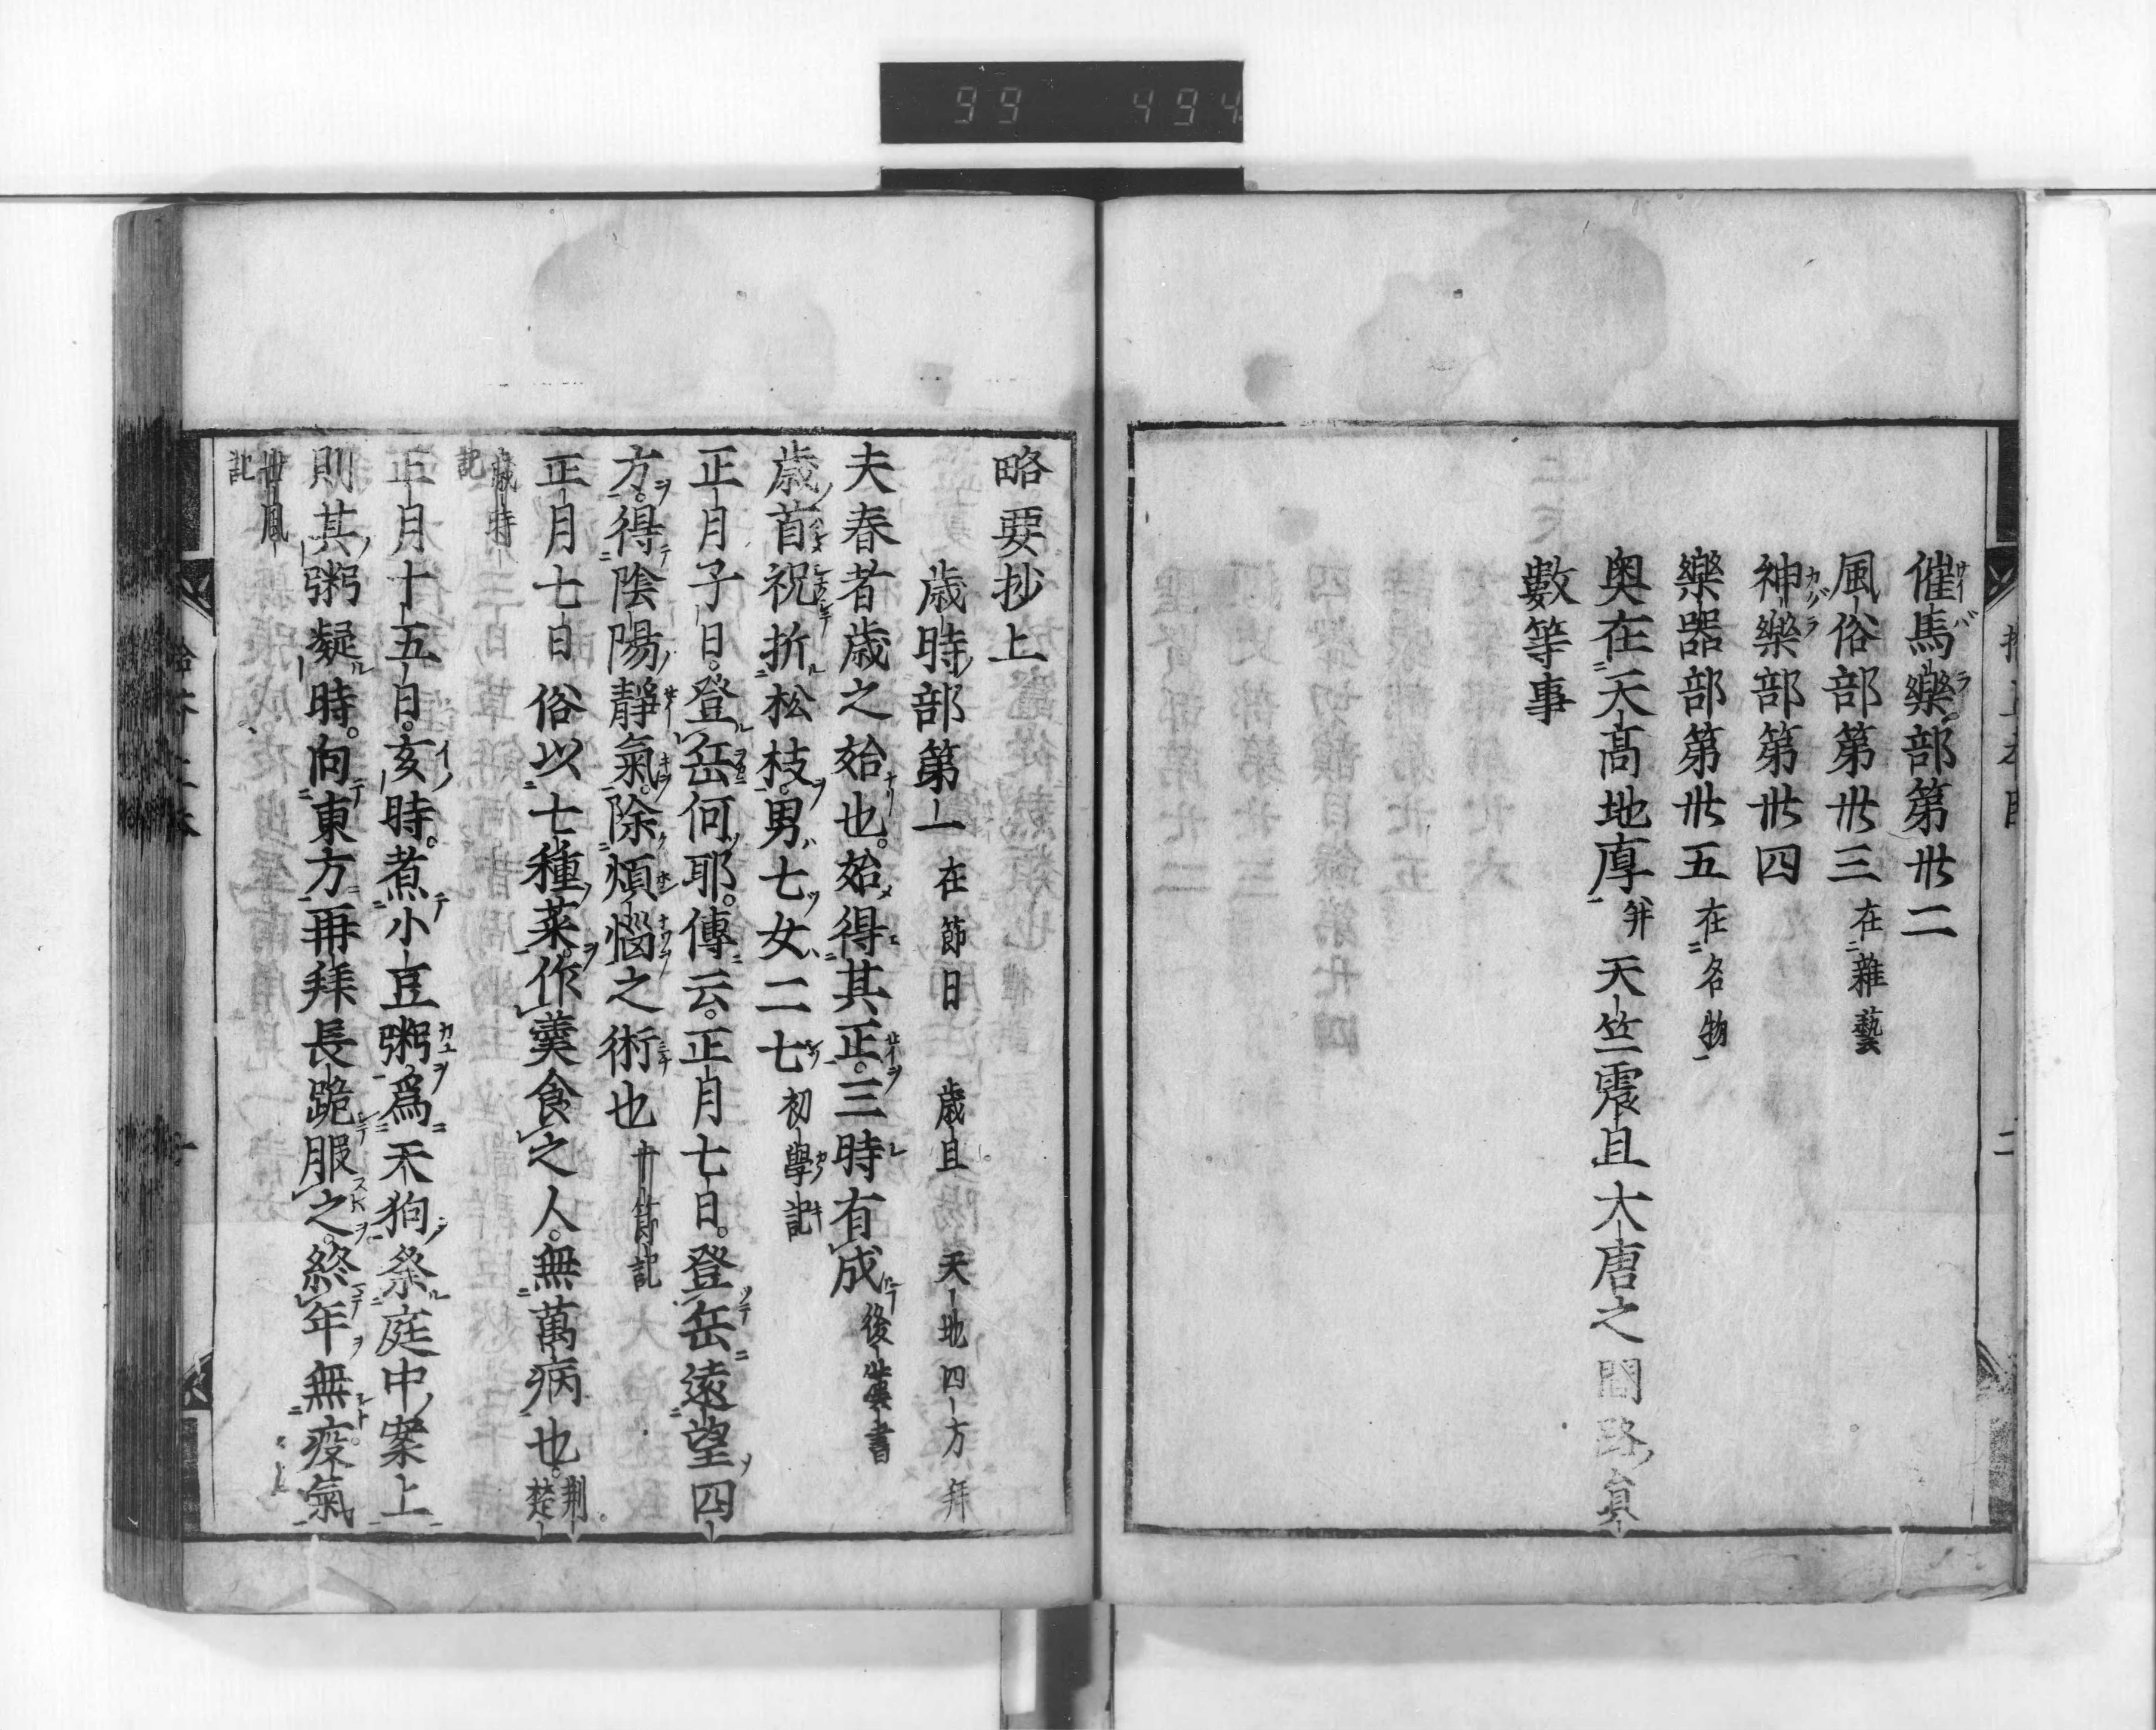 99 494
催馬樂部第卅二
風俗部第卅三 在雜藝
神樂部第卅四
樂器部第卅五 在名物
奥在天髙地厚 并 天竺震旦大唐之間路
數等事
略要抄上
歳時部第一 在節日 歳旦 天地四方拜
夫春者歳之始也。始得其正。三時有成 後漢書
歳首祝折松枝。男七女二七 初學記
正月子日。登岳何耶。傳云。正月七日。登岳遠望四
方。得陰陽靜氣。除煩惱之術也 十節記
正月七日俗以七種菜。作羹食之人。無萬病也。荆楚
歳時記
正月十五日。亥時。煮小豆粥爲天狗祭庭中案上
則其粥凝時。向東方再拜長跪服之。終年無疫氣
世風記